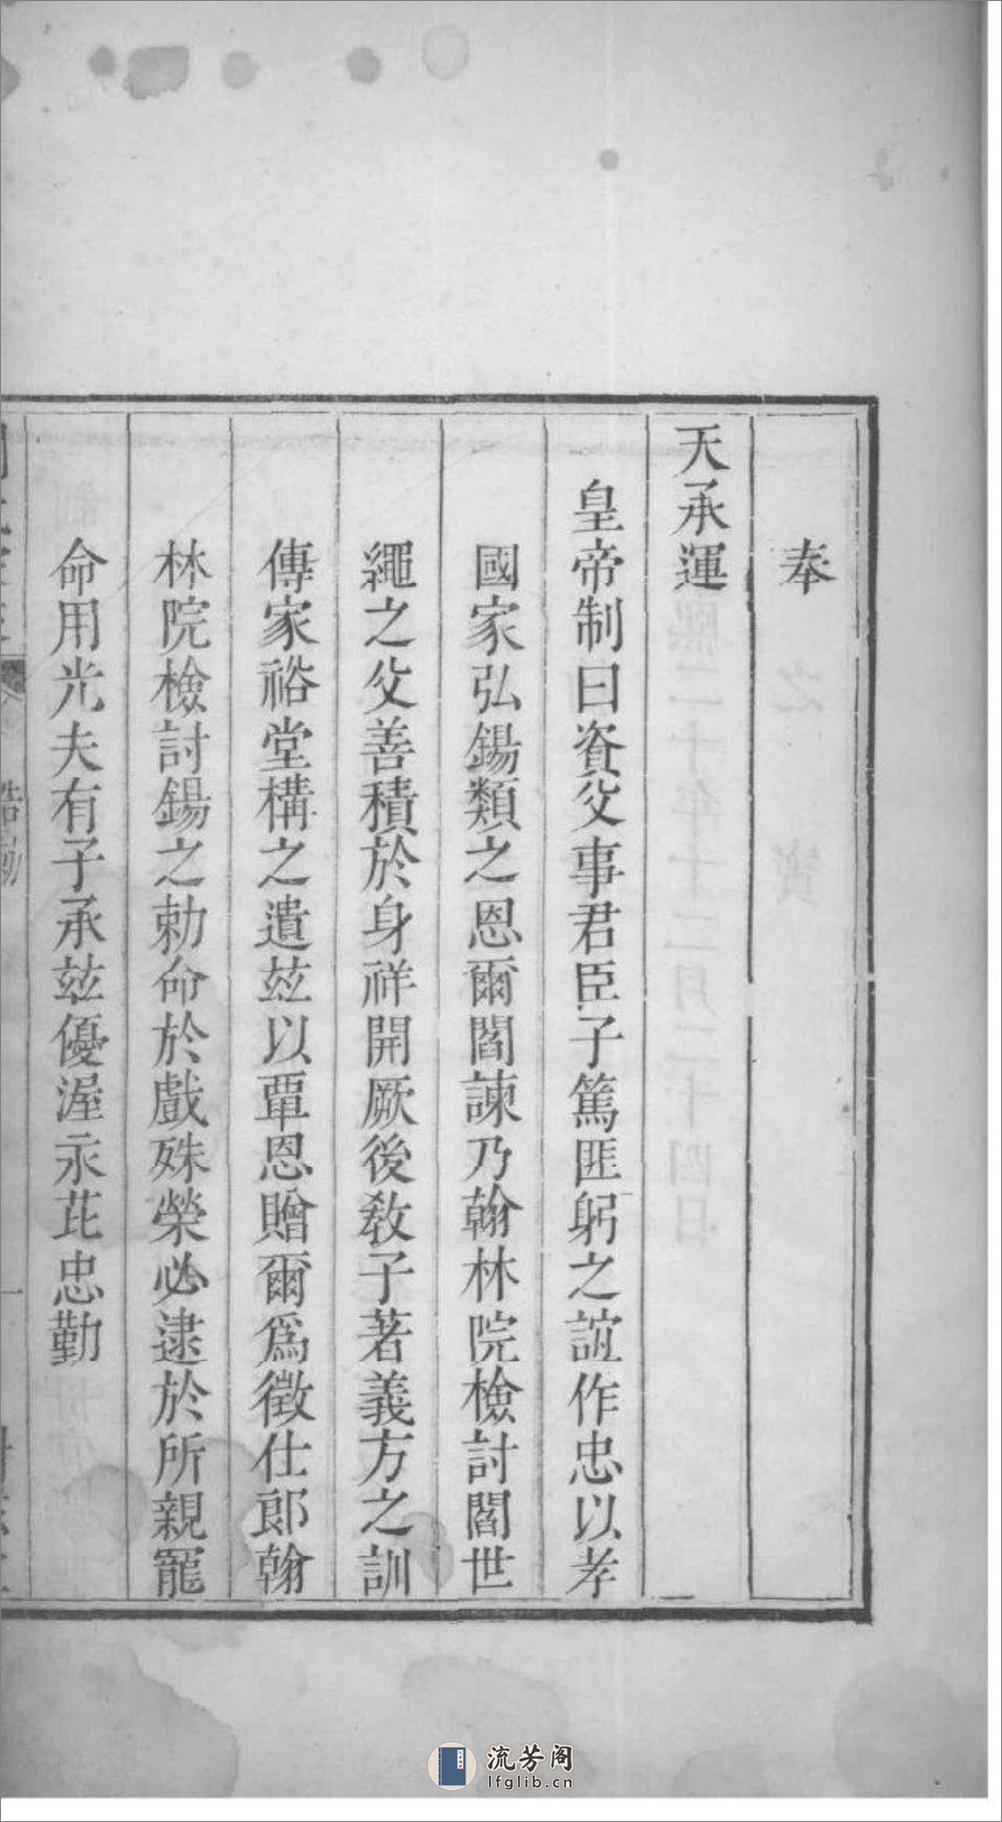 奉
天承運
皇帝制曰資父事君臣子篤匪躬之誼作忠以孝
國家弘錫類之恩爾閻諫乃翰林院檢討閻世
繩之父善積於身祥開厥後敎子著義方之訓
傳家裕堂構之遺玆以覃恩贈爾爲徵仕郞翰
林院檢討錫之勅命於戲殊榮必逮於所親寵
命用光夫有子承玆優渥永芘忠勤
誥勅
流芳阁
lfglib.cn